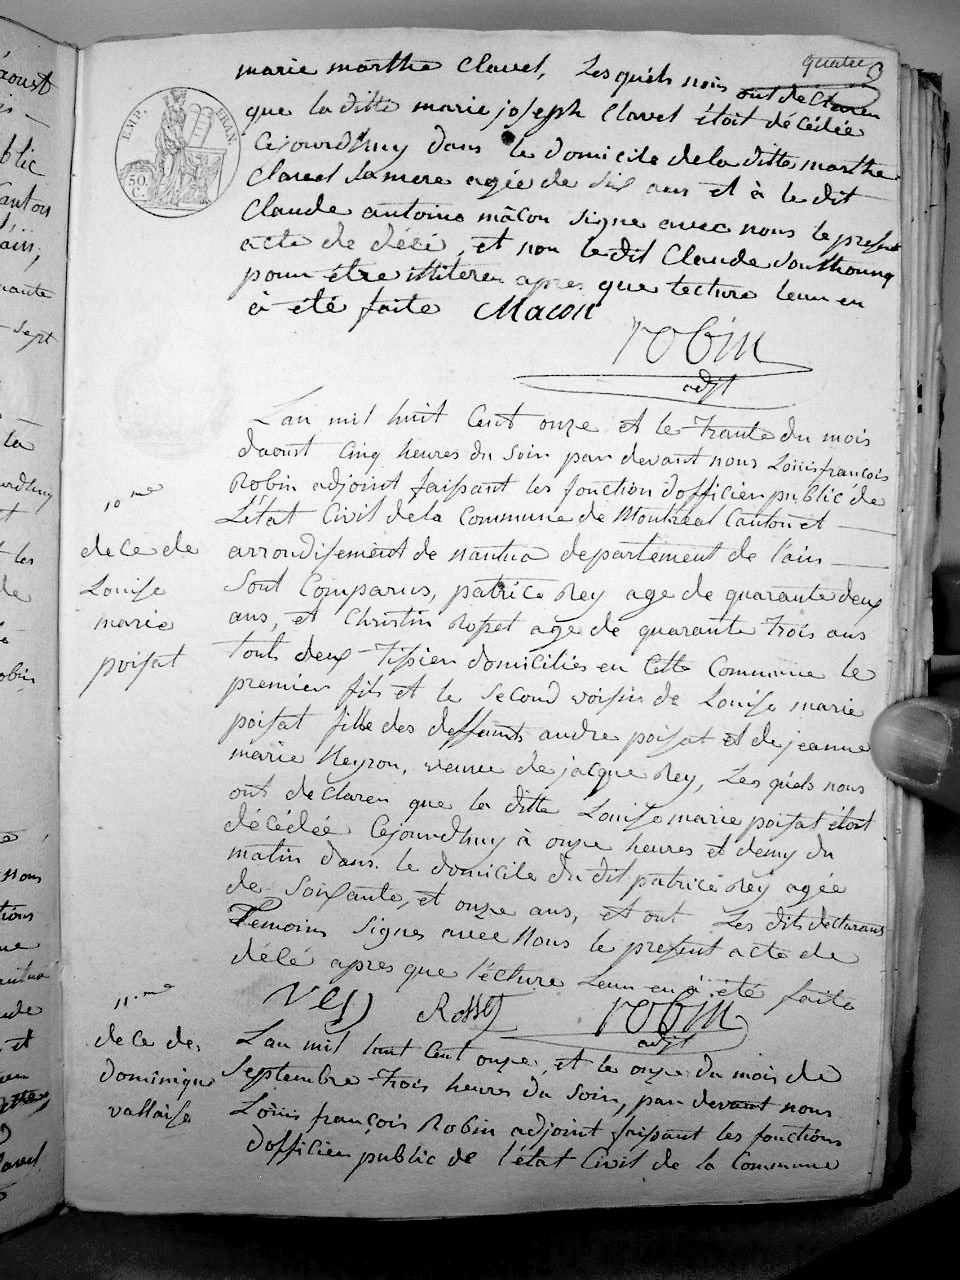 quatre
marie marthe Clavel, Les quels nous ont declaren
que la ditte marie joseph Clavel étoit décédée
Cejourdhuy dans le domicile de la ditte marthe
Clavel sa mere agée de six ans et à le dit
Claude antoine mâcon signe avec nous le present
acte de décé, et non le dit Claude
pour être illiteren apres que lecture leur en
à été faite Macon
robin
adjt
EMP. FRAN.
50
L'an mil huit Cent onze et le trante du mois
daoust Cinq heures du soir par devant nous Loüis françois
Robin adjoint faissant les fonction dofficien public de
L'état Civil de la Commune de Montréal Canton et
arrondisement de nantua departement de l'ain
Sont Comparus, patrice Rey age de quarante deux
ans, et Christin Rosset age de quarante trois ans
touts deux tissien domiciliés en Cette Commune le
premier fils et le second voisin de Louise marie
poisat fille des deffunts andre poisat et de jeanne
marie Neyron, veuve de jacque Rey, Les quels nous
ont declaren que la ditte Louise marie poisat étoit
décédée Cejourdhuy à onze heures et demy du
matin dans le domicile du dit patrice Rey agée
de soixante, et onze ans, et ont Les dits declarans
Temoins signes avec Nous le present acte de
décé apres que lécture leur en à été faite
rey Rosset robin
adjt
10me
dece de
Louise
marie
poisat
L'an mil huit Cent onze, et le onze du mois de
Septembre trois heures du soir, par devant nous
Loüis françois Robin adjoint faissant les fonctions
dofficien public de l'état Civil de la Commune
11.me
dece de
dominique
vallaise